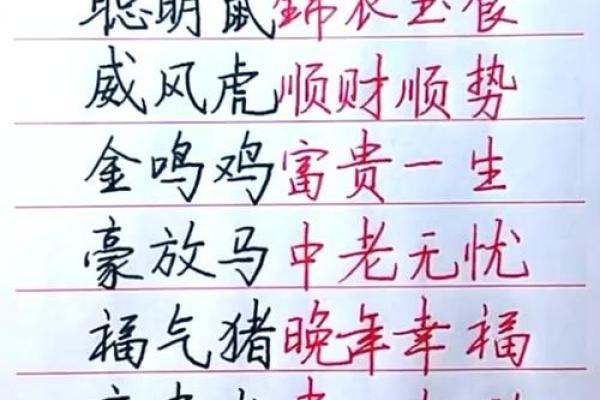 聪明鼠锦衣玉食
威风虎顺财顺势
金鸣鸡富贵一生
豪放马中老无忧
福气猪晚年幸福